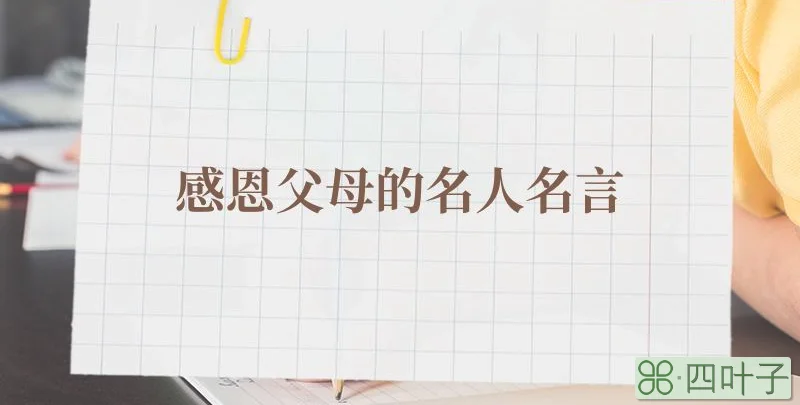 感恩父母的名人名言
四叶子